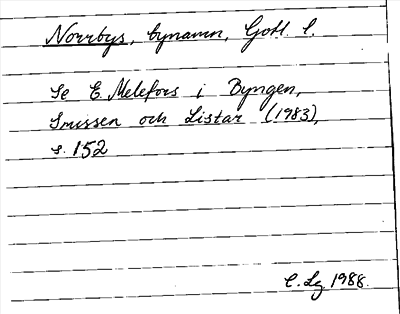 Norrbys, bynamn, Gotl. l.
Se E Melefors i Byngen,
Smissen och Listar (1983),
s. 152
C. Lg 1988.